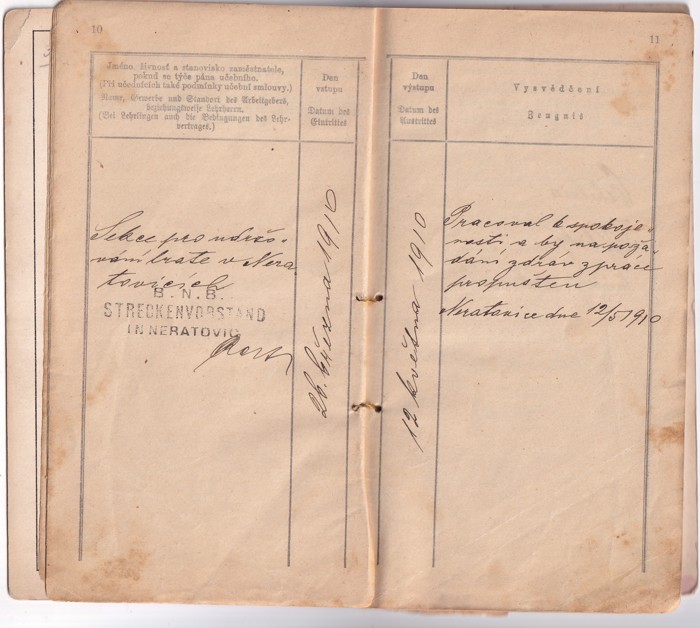 10
Jméno, živnosť a stanovisko zaměstnatele,
pokud se týče pána učebního.
(Při učednících také podmínky učební smlouvy.)
Name, Gewerbe und Standort des Arbeitgebers,
beziehungsweise Lehrherrn.
(Bei Lehrlingen auch die Bedingungen des Lehr-
vertrages.)
Den
vstupu
Datum des
Eintrittes
Sekce pro udržo-
vání tratě v Nera
tovicích
B. N. B.
STRECKENVORSTAND
IN NERATOVIC
26. března 1910
11
Den
výstupu
Datum des
Austrittes
Vysvědčení
Zeugnis
12 května 1910
Pracoval k spokoje-
nosti, a by na požá
dání zdráv z práce
propuštěn
Neratovice dne 12/5 1910